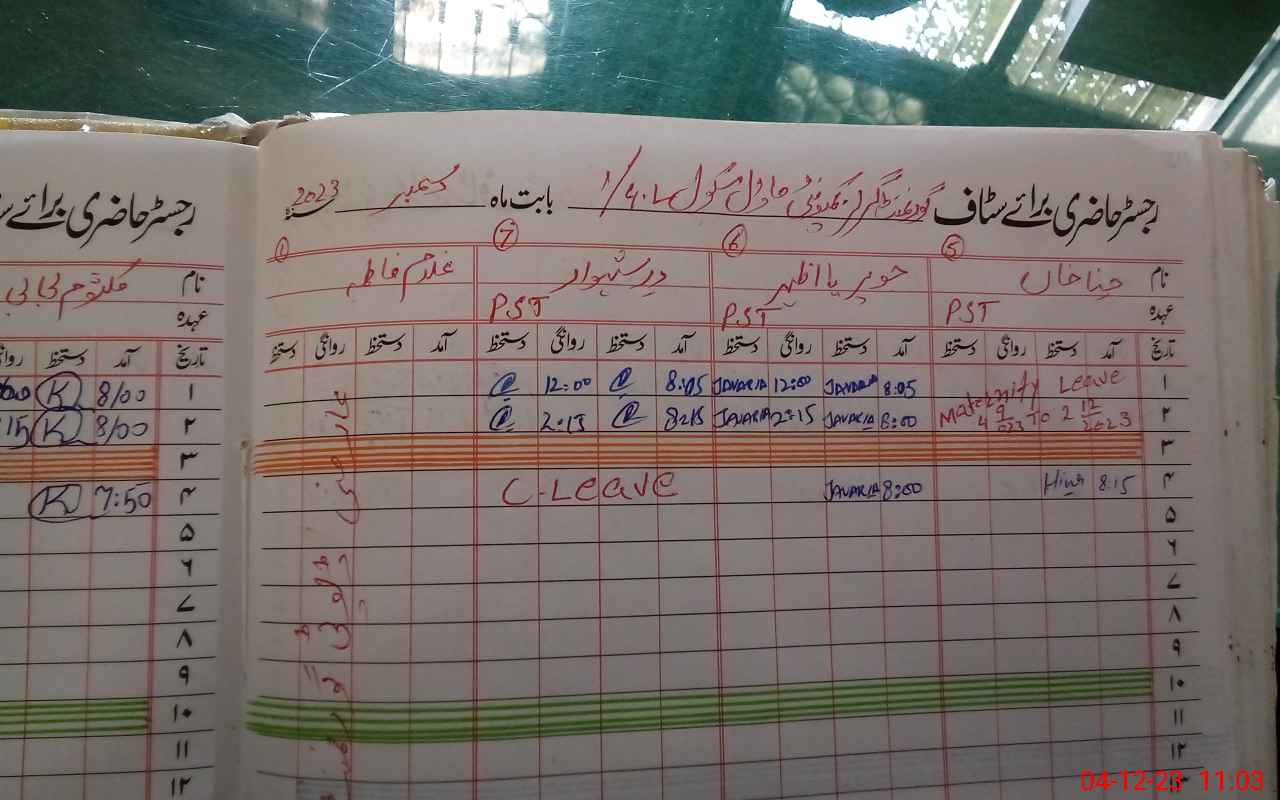 رجسٹر حاضری برائے سٹاف گورنمنٹ گرلز کمیونٹی ماڈل سکول بابت ماہ دسمبر 2023
رجسٹر حاضری برائے
5 6 7
نام حنا خاں درشہوار غلام فاطمہ
عہدہ PST PST PST
تاریخ آمد دستخط روانگی دستخط آمد دستخط روانگی دستخط آمد دستخط روانگی دستخط آمد دستخط روانگی دستخط
۱ Maternity Leave 8:05 JAVARIA 12:00 JAVARIA 8:05 12:00
۲ 4 9 2023 To 2 12 2023 8:00 JAVARIA 2:15 JAVARIA 8:15 2:15
۳
۴ 8:15 Hina 8:00 JAVARIA C-Leave
۵
۶
۷
۸
۹
۱۰
۱۱
۱۲
نام کلثوم بی بی
عہدہ
تاریخ آمد دستخط
۱ 8/00 K
۲ 8/00 K
۳
۴ 7:50 K
۵
۶
۷
۸
۹
۱۰
۱۱
۱۲
04-12-23 11:03